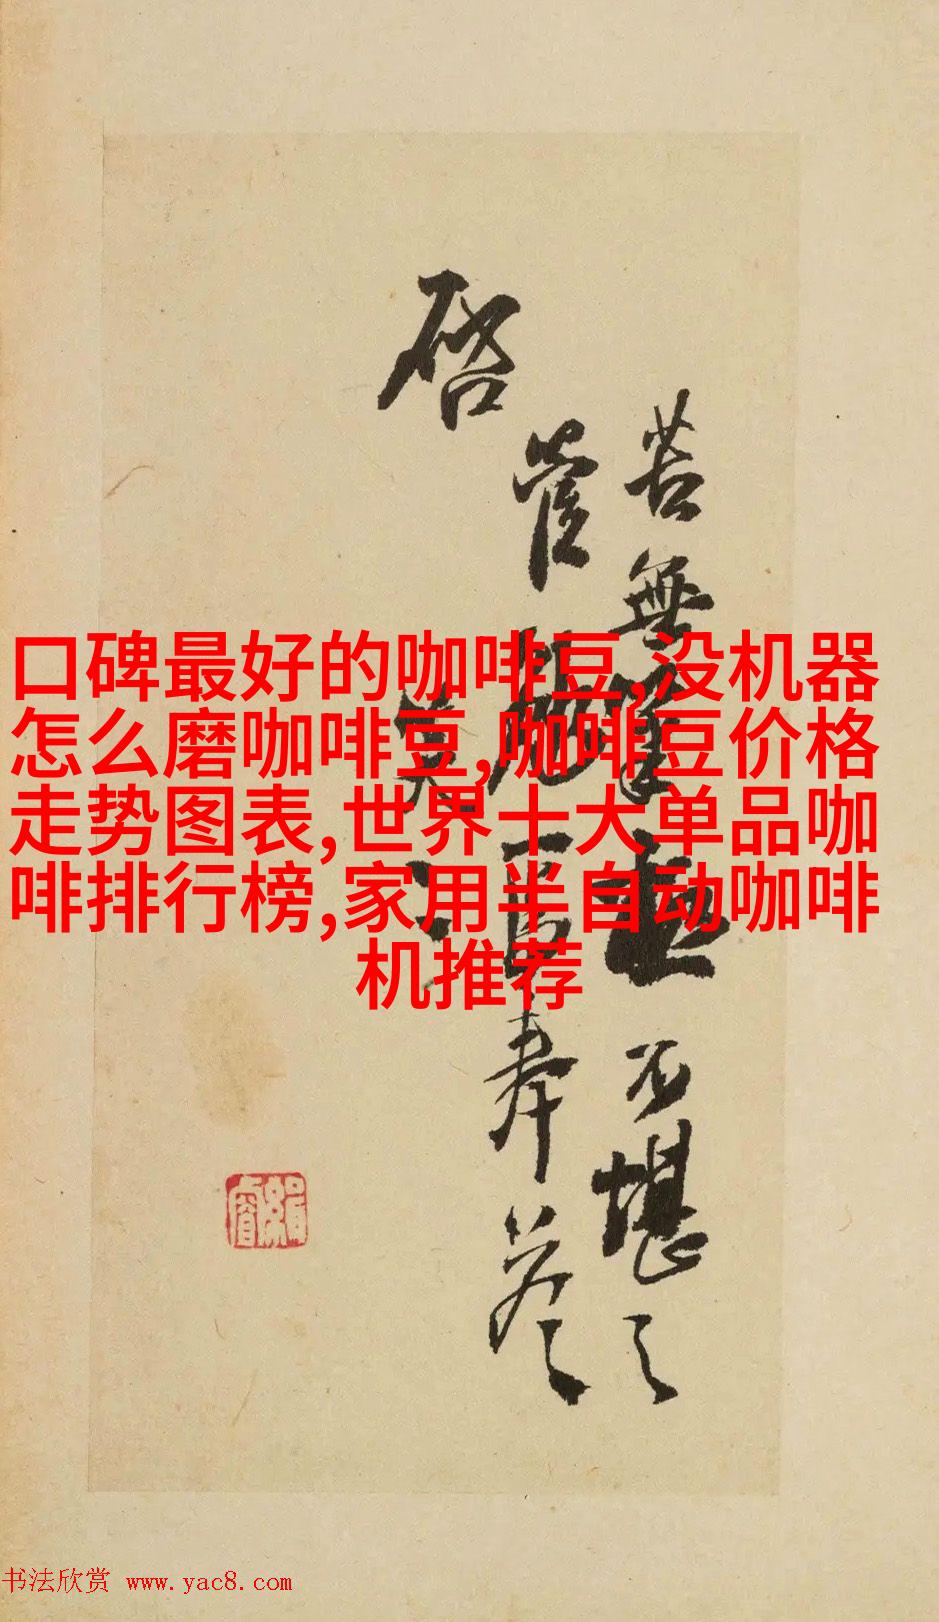 口碑最好的咖啡豆,没机器
怎么磨咖啡豆,咖啡豆价格
走势图表,世界十大单品咖
啡排行榜,家用半自动咖啡
机推荐
苦無筆
不堪之
啓
奉答
书法欣赏 www.yac8.com